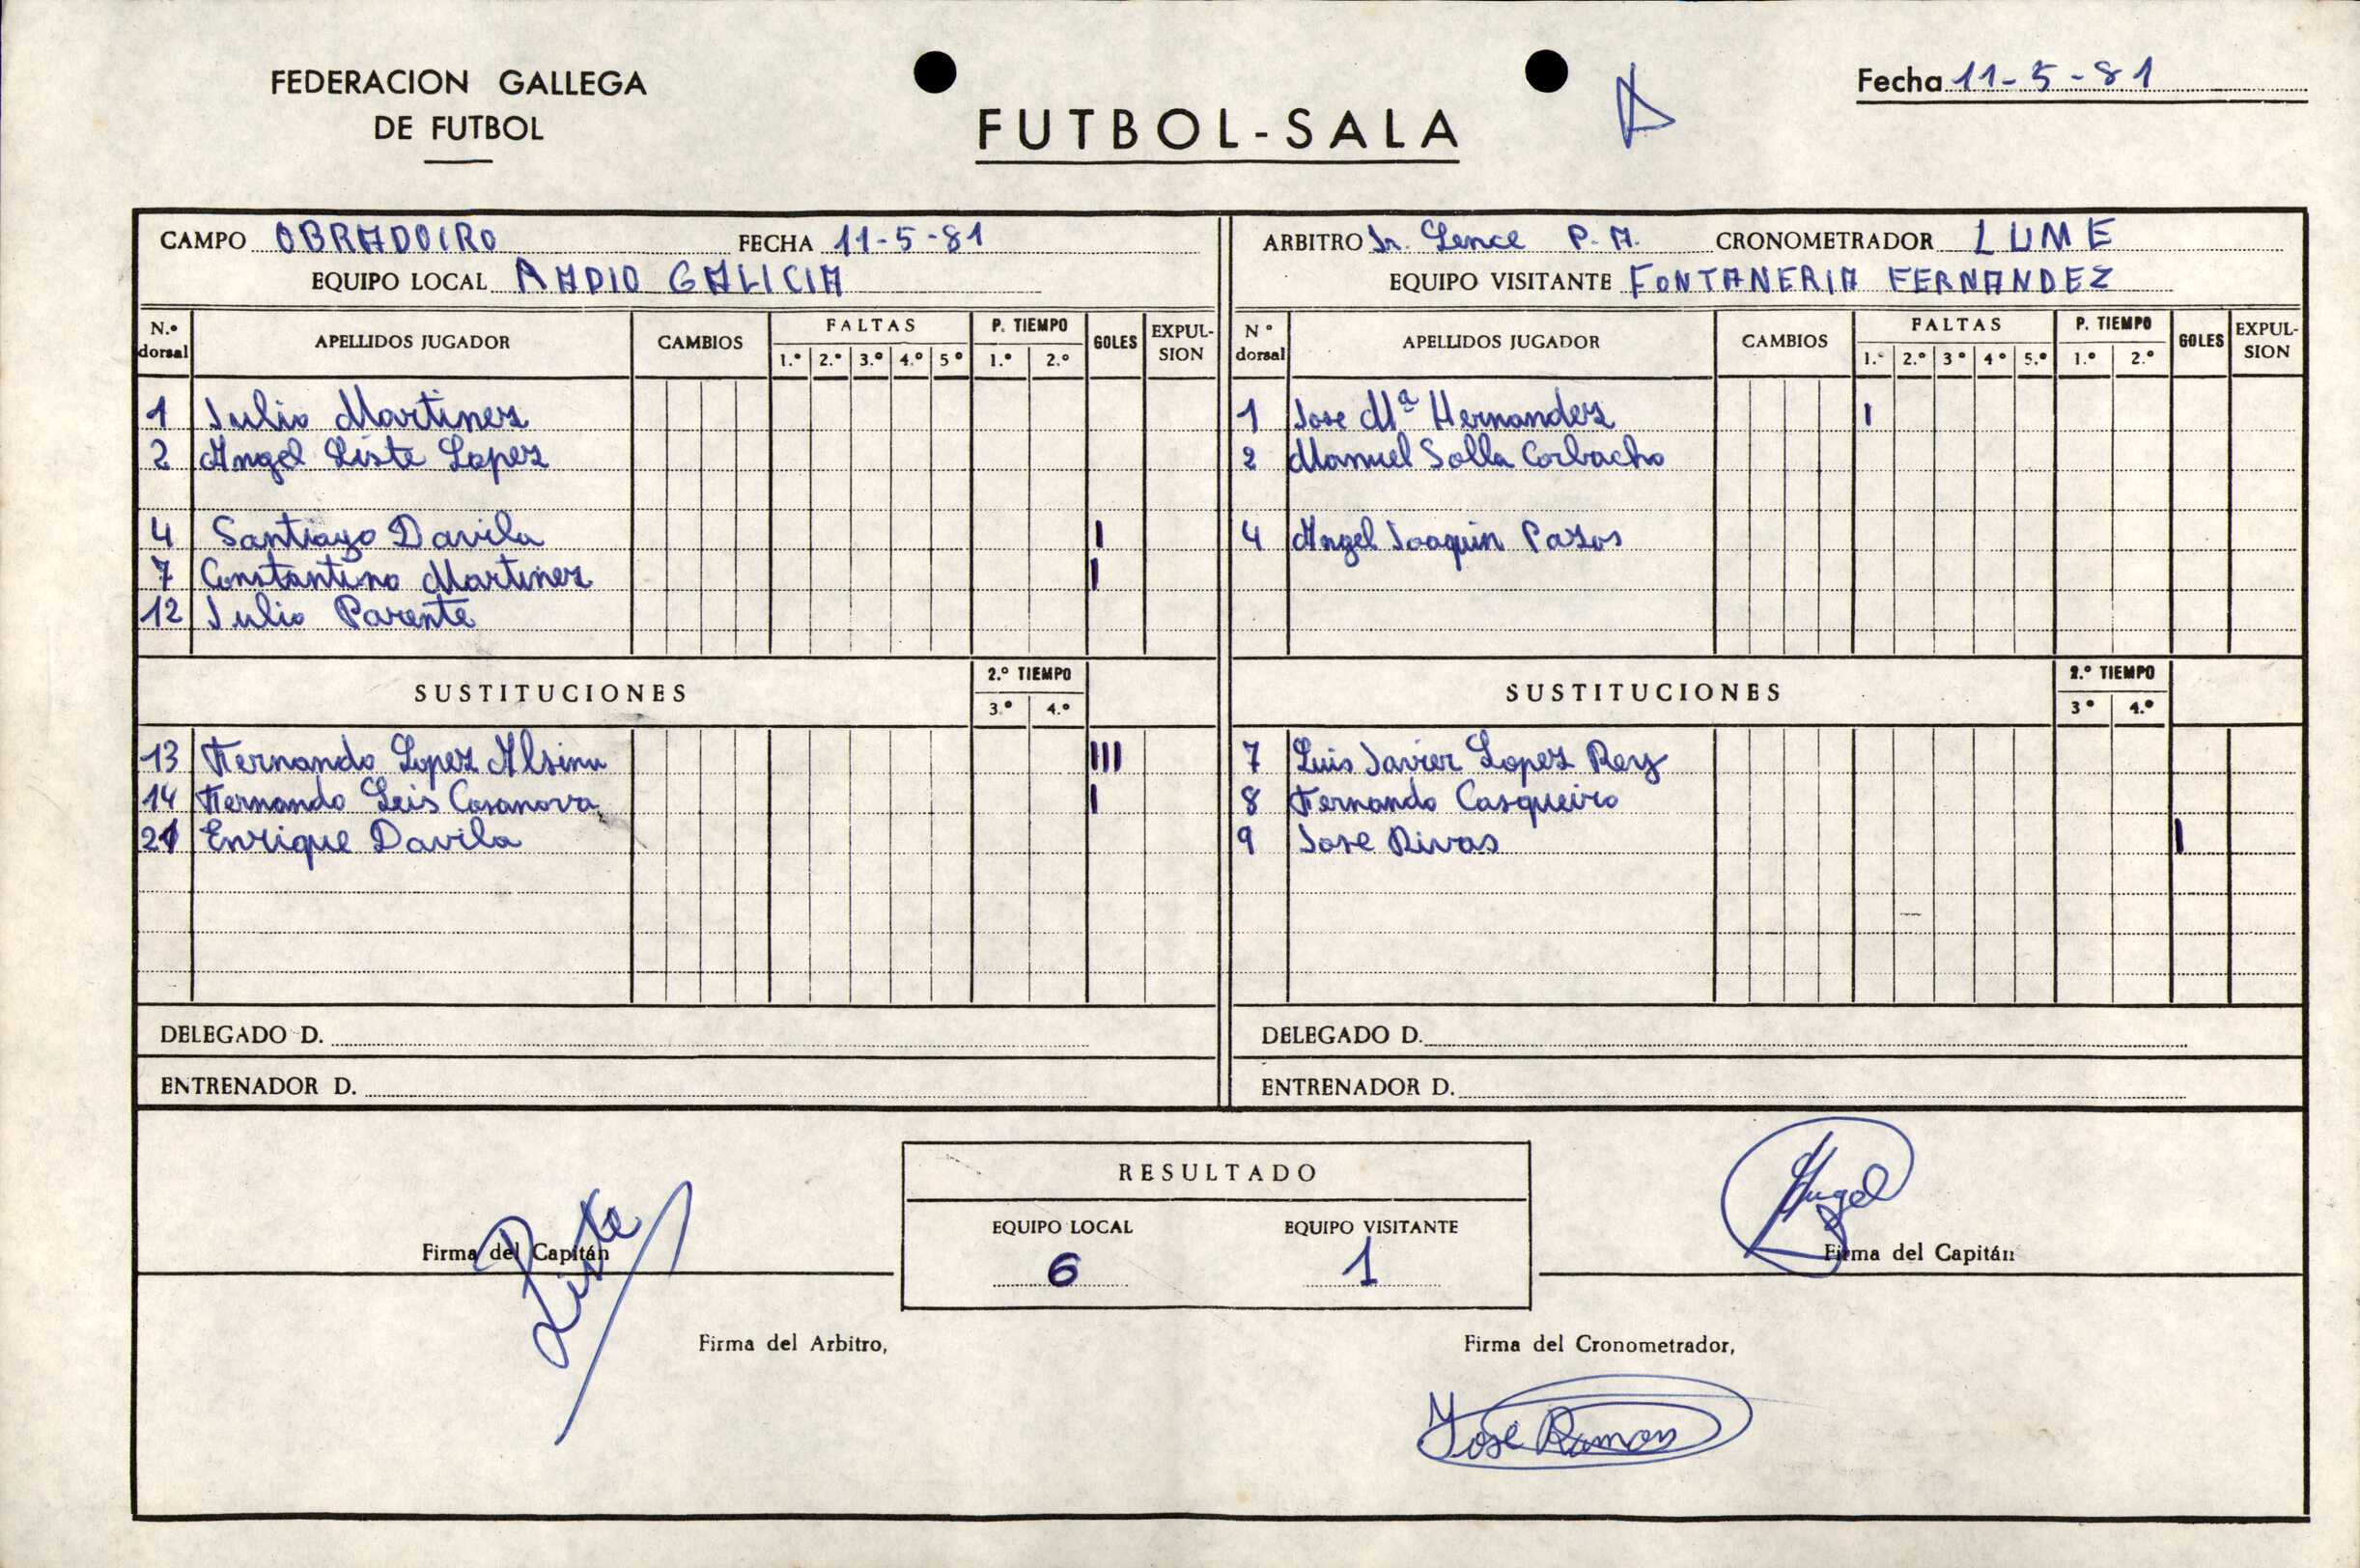 FEDERACION GALLEGA
DE FUTBOL
FUTBOL-SALA
Fecha 11-5-81
CAMPO OBRADOIRO FECHA 11-5-81
EQUIPO LOCAL RADIO GALICIA
N.º dorsal APELLIDOS JUGADOR CAMBIOS FALTAS 1.º 2.º 3.º 4.º 5º P. TIEMPO 1.º 2.º GOLES EXPULSION
1 Julio Martinez
2 Angel Liste Lopez
4 Santiago Davila I
7 Constantino Martinez I
12 Julio Parente
SUSTITUCIONES 2.º TIEMPO 3.º 4.º
13 Fernando Lopez Alsina III
14 Fernando Leis Casanova I
21 Enrique Davila
DELEGADO D.
ENTRENADOR D.
ARBITRO Sr. Lence P. A. CRONOMETRADOR LUME
EQUIPO VISITANTE FONTANERIA FERNANDEZ
Nº dorsal APELLIDOS JUGADOR CAMBIOS FALTAS 1.º 2.º 3º 4º 5.º P. TIEMPO 1.º 2.º GOLES EXPULSION
1 Jose Mª Hernandez I
2 Manuel Solla Corbacho
4 Angel Joaquin Pazos
SUSTITUCIONES 2.º TIEMPO 3º 4.º
7 Luis Javier Lopez Rey
8 Fernando Casqueiro
9 Jose Rivas I
DELEGADO D.
ENTRENADOR D.
RESULTADO
EQUIPO LOCAL EQUIPO VISITANTE
6 1
Firma del Capitán
Liste
Angel
Firma del Capitán
Firma del Arbitro,
Firma del Cronometrador,
Jose Ramon